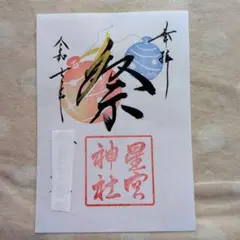 奉拝
祭
星宮
神社
令和